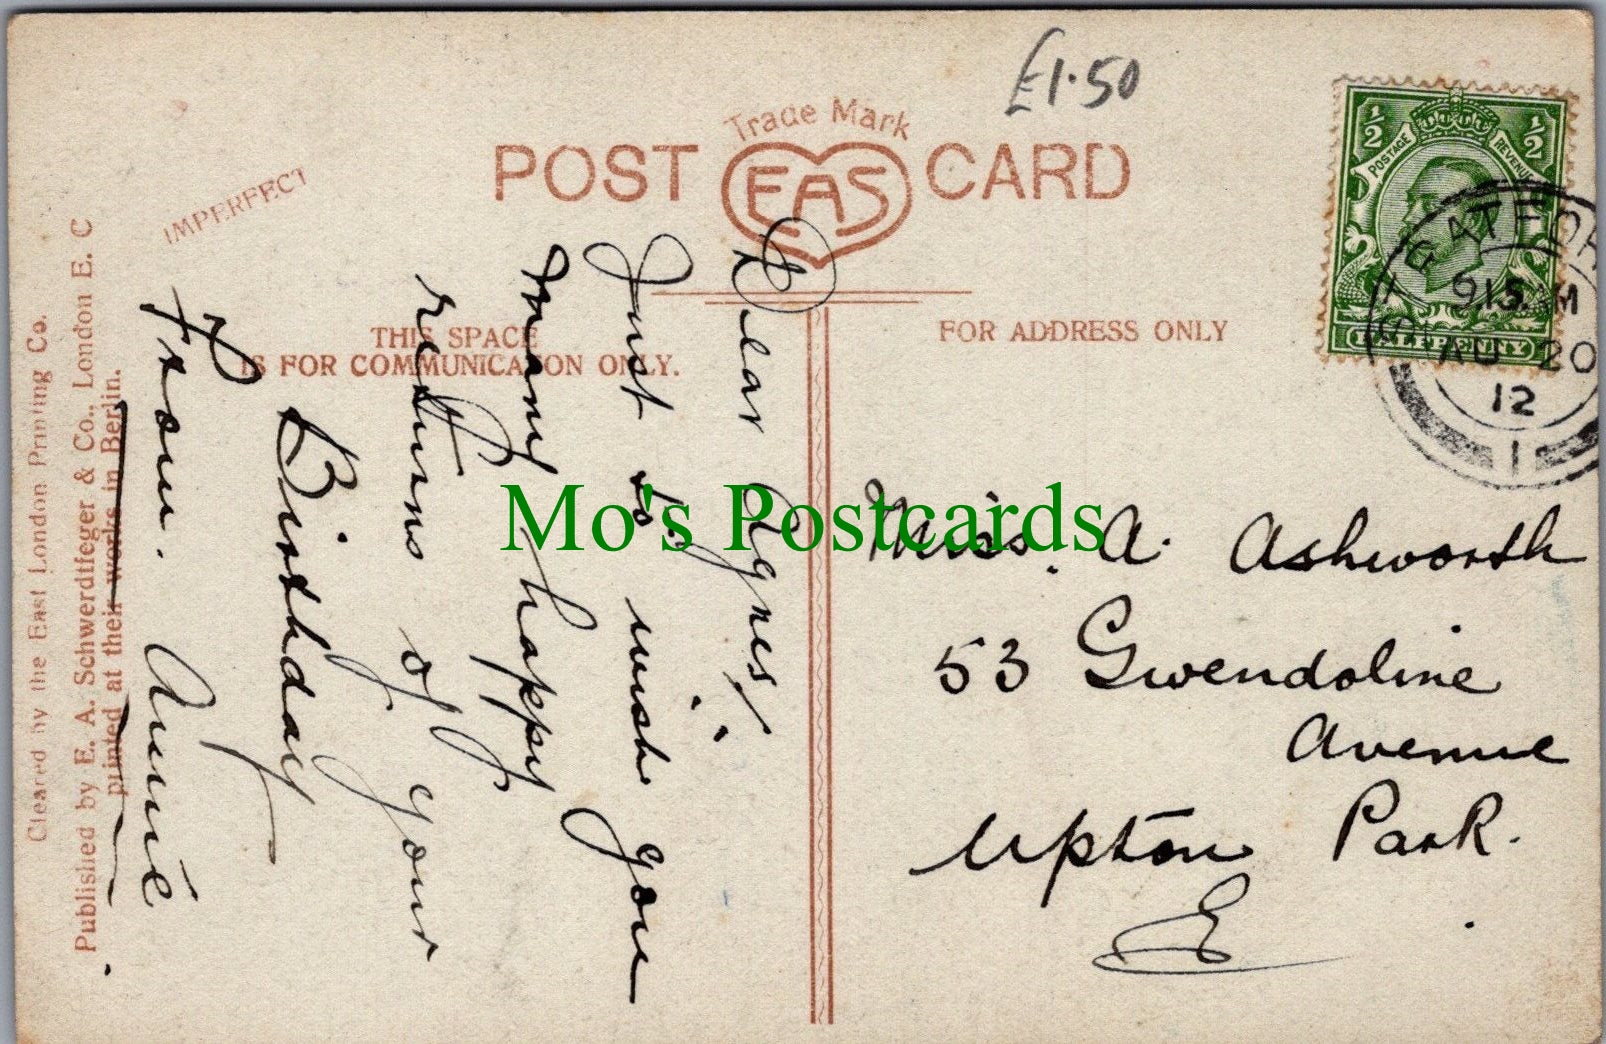 £1.50
Trade Mark
POST EAS CARD
½ ½
POSTAGE REVENUE
HALFPENNY
STRATFOR
9.15 AM
AU 20
12
1
IMPERFECT
THIS SPACE
IS FOR COMMUNICATION ONLY.
FOR ADDRESS ONLY
Cleared by the East London Printing Co.
Published by E. A. Schwerdtfeger & Co., London E. C
printed at their works in Berlin.
Dear Agnes/
Just to wish you
many happy
returns of your
Birthday
From. Annie
Miss. A. Ashworth
53 Gwendoline
Avenue
Upton Park.
E
Mo's Postcards